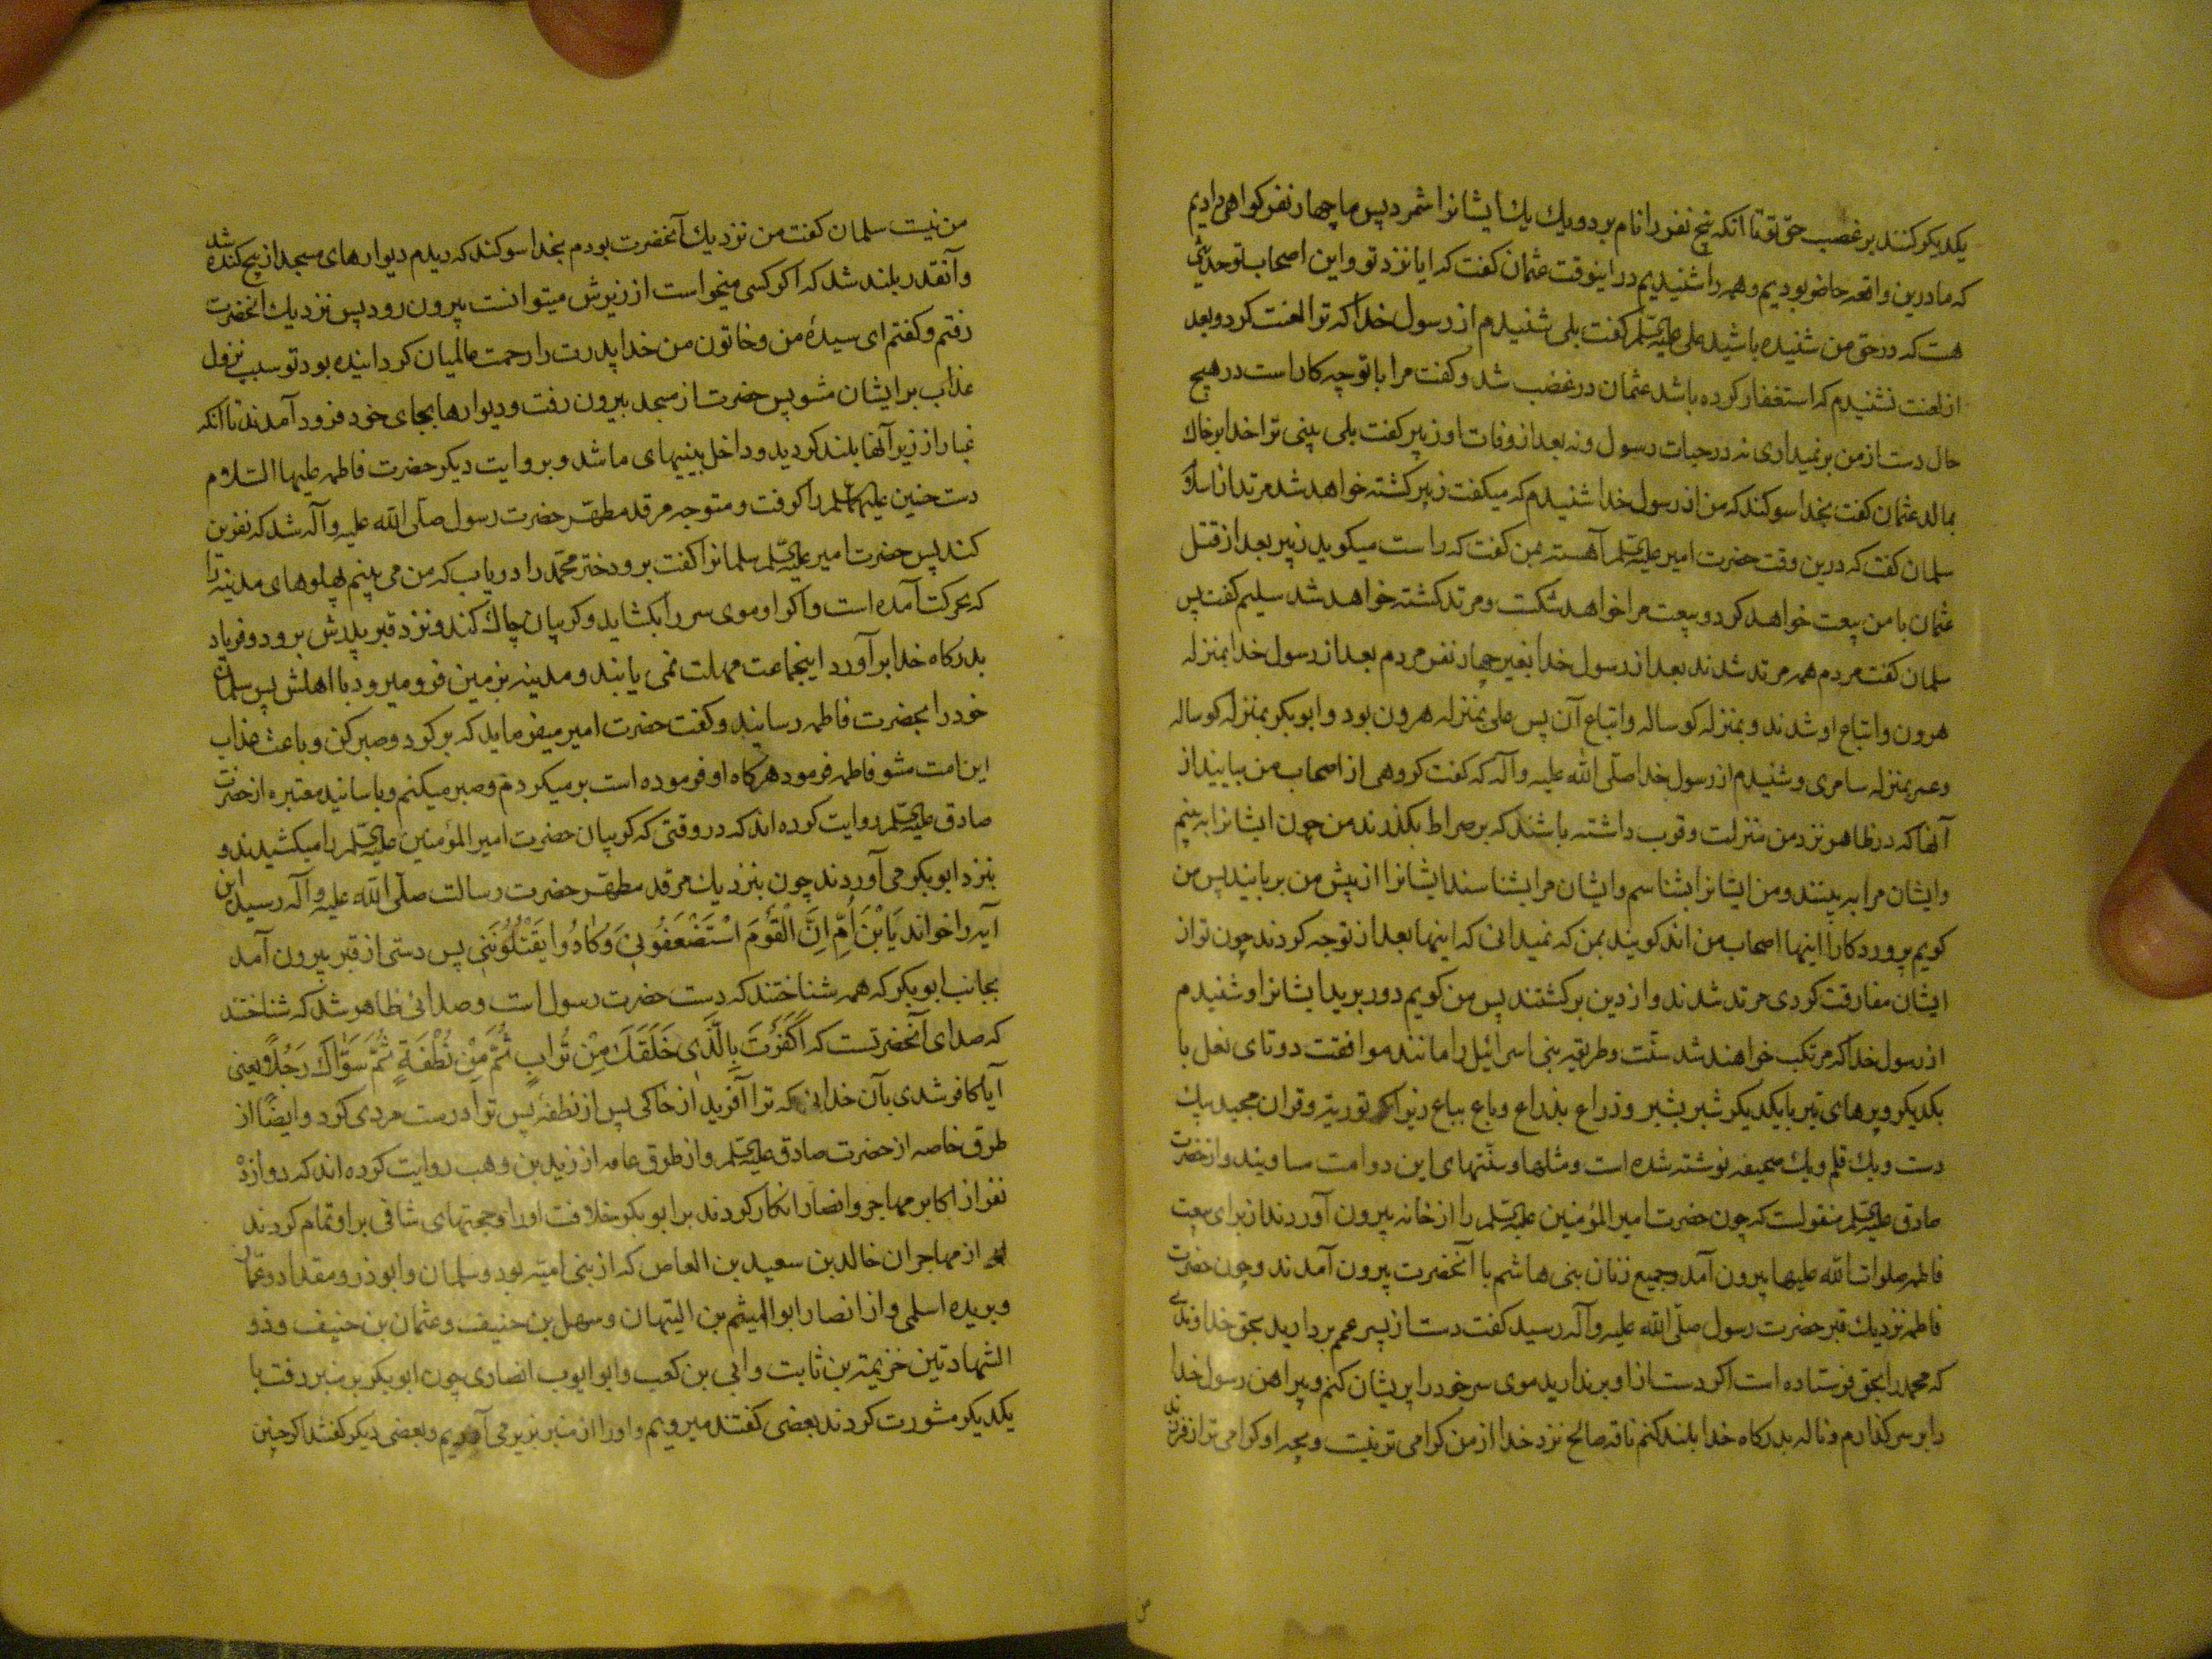 یکدیکر کنند بر غصب حق تو تا آنکه پنج نفر را نام برد و یک یک ایشانرا شمرد پس ما چهار نفر کواهی دادیم
که ما درین واقعه حاضر بودیم و همه را شنیدیم در اینوقت عثمان کفت که ایا نزد تو و این اصحاب تو حدیثی
هست که در حق من شنیده باشید علی علیه السلم کفت بلی شنیدم از رسول خدا که ترا لعنت کرد و بعد
از لعنت نشنیدم که استغفار کرده باشد عثمان در غضب شد و کفت مرا با تو چه کار است در هیچ
حال دست از من برنمیداری نه در حیات رسول و نه بعد از وفات او زبیر کفت بلی بینی ترا خدا بر خاک
بمالد عثمان کفت بخدا سوکند که من از رسول خدا شنیدم که میکفت زبیر کشته خواهد شد مرتد از اسلام
سلمان کفت که درین وقت حضرت امیر علیه السلم آهسته بمن کفت که راست میکوید زبیر بعد از قتل
عثمان با من بیعت خواهد کرد و بیعت مرا خواهد شکست و مرتد کشته خواهد شد سلیم کفت پس
سلمان کفت مردم همه مرتد شدند بعد از رسول خدا بغیر چهار نفر مردم بعد از رسول خدا بمنزله
هرون و اتباع او شدند و بمنزله کوساله و اتباع آن پس علی بمنزله هرون بود و ابوبکر بمنزله کوساله
و عمر بمنزله سامری و شنیدم از رسول خدا صلّی الله علیه و آله که کفت کروهی از اصحاب من بیایند از
آنها که در ظاهر نزد من منزلت و قرب داشته باشند که بر صراط بکذرند من چون ایشانرا به بینم
و ایشان مرا به بینند و من ایشانرا بشناسم و ایشان مرا بشناسند ایشانرا از پیش من بربایند پس من
کویم پروردکارا اینها اصحاب من اند کویند بمن که نمیدانی که اینها بعد از تو چه کردند چون تو از
ایشان مفارقت کردی مرتد شدند و از دین برکشتند پس من کویم دور برید ایشانرا و شنیدم
از رسول خدا که مرتکب خواهند شد سنّت و طریقه بنی اسرائیل را مانند موافقت دو تای نعل با
یکدیکر و پرهای تیر با یکدیکر شبر بشبر و ذراع بذراع و باع بباع زیرا که توریة و قران مجید بیک
دست و بیک قلم و یک صحیفه نوشته شده است و مثلها و سنّتهای این دو امت مساویند و از حضرت
صادق علیه السلم منقولست که چون حضرت امیر المؤمنین علیه السلم را از خانه بیرون آوردند از برای بیعت
فاطمه صلوات الله علیها بیرون آمد و جمیع زنان بنی هاشم با آنحضرت بیرون آمدند و چون حضرت
فاطمه نزدیک قبر حضرت رسول صلّی الله علیه و آله رسید کفت دست از پسر عمم بردارید بحق خداوندی
که محمد را بحق فرستاده است اکر دست از او برندارید موی سر خود را پریشان کنم و پیراهن رسول خدا
را بر سر کذارم و ناله بدرکاه خدا بلند کنم ناقه صالح نزد خدا از من کرامی تر نیست و بچه او کرامی تر از فرزند
من نیست سلمان کفت من نزدیک آنحضرت بودم بخدا سوکند که دیدم دیوارهای مسجد از بیخ کنده شد
و آنقدر بلند شد که اکر کسی میخواست از زیرش میتوانست بیرون رود پس نزدیک آنحضرت
رفتم و کفتم ای سیدهٔ من و خاتون من خدا پدرت را رحمت عالمیان کردانیده بود تو سبب نزول
عذاب بر ایشان مشو پس حضرت از مسجد بیرون رفت و دیوارها بجای خود فرود آمدند تا آنکه
غبار از زیر آنها بلند کردید و داخل بینیهای ما شد و بروایت دیکر حضرت فاطمه علیها السّلام
دست حسنین علیهما السلم را کرفت و متوجه مرقد مطهّر حضرت رسول صلّی الله علیه و آله شد که نفرین
کند پس حضرت امیر علیه السلم سلمانرا کفت برو دختر محمّد را دریاب که من می بینم پهلوهای مدینه را
که بحرکت آمده است و اکر او موی سر را بکشاید و کریبان چاک کند و نزد قبر پدرش برود و فریاد
بدرکاه خدا برآورد اینجماعت مهلت نمی یابند و مدینه بزمین فرو میرود با اهلش پس سلمان
خود را بحضرت فاطمه رسانید و کفت حضرت امیر میفرماید که برکرد و صبر کن و باعث عذاب
این امت مشو فاطمه فرمود هرکاه او فرموده است برمیکردم و صبر میکنم و باسانید معتبره از حضرت
صادق علیه السلم روایت کرده اند که در وقتی که کریبان حضرت امیر المؤمنین علیه السلم را میکشیدند و
بنزد ابوبکر می آوردند چون بنزدیک مرقد مطهّر حضرت رسالت صلّی الله علیه و آله رسید این
آیه را خواند یَابْنَ أُمَّ اِنَّ الْقَوْمَ اسْتَضْعَفُونِی وَکَادُوا یَقْتُلُونَنِی پس دستی از قبر بیرون آمد
بجانب ابوبکر که همه شناختند که دست حضرت رسول است و صدائی ظاهر شد که شناختند
که صدای آنحضرتست که أَکَفَرْتَ بِالَّذِی خَلَقَکَ مِنْ تُرابٍ ثُمَّ مِنْ نُطْفَةٍ ثُمَّ سَوّاکَ رَجُلًا یعنی
آیا کافر شدی بآن خدائی که ترا آفرید از خاکی پس از نطفهٔ پس ترا درست مردی کرد و ایضًا از
طرق خاصه از حضرت صادق علیه السلم و از طرق عامه از زید بن وهب روایت کرده اند که دوازده
نفر از اکابر مهاجر و انصار انکار کردند بر ابوبکر خلافت او را و حجتهای شافی بر او تمام کردند
از مهاجران خالد بن سعید بن العاص که از بنی امیّه بود و سلمان و ابوذر و مقداد و عمار
و بریده اسلمی و از انصار ابوالهیثم بن التیهان و سهل بن حنیف و عثمان بن حنیف و ذو
الشهادتین خزیمة بن ثابت و ابی بن کعب و ابو ایوب انصاری چون ابوبکر بر منبر رفت با
یکدیکر مشورت کردند بعضی کفتند میرویم و او را از منبر بزیر می آوریم و بعضی دیکر کفتند اکر چنین